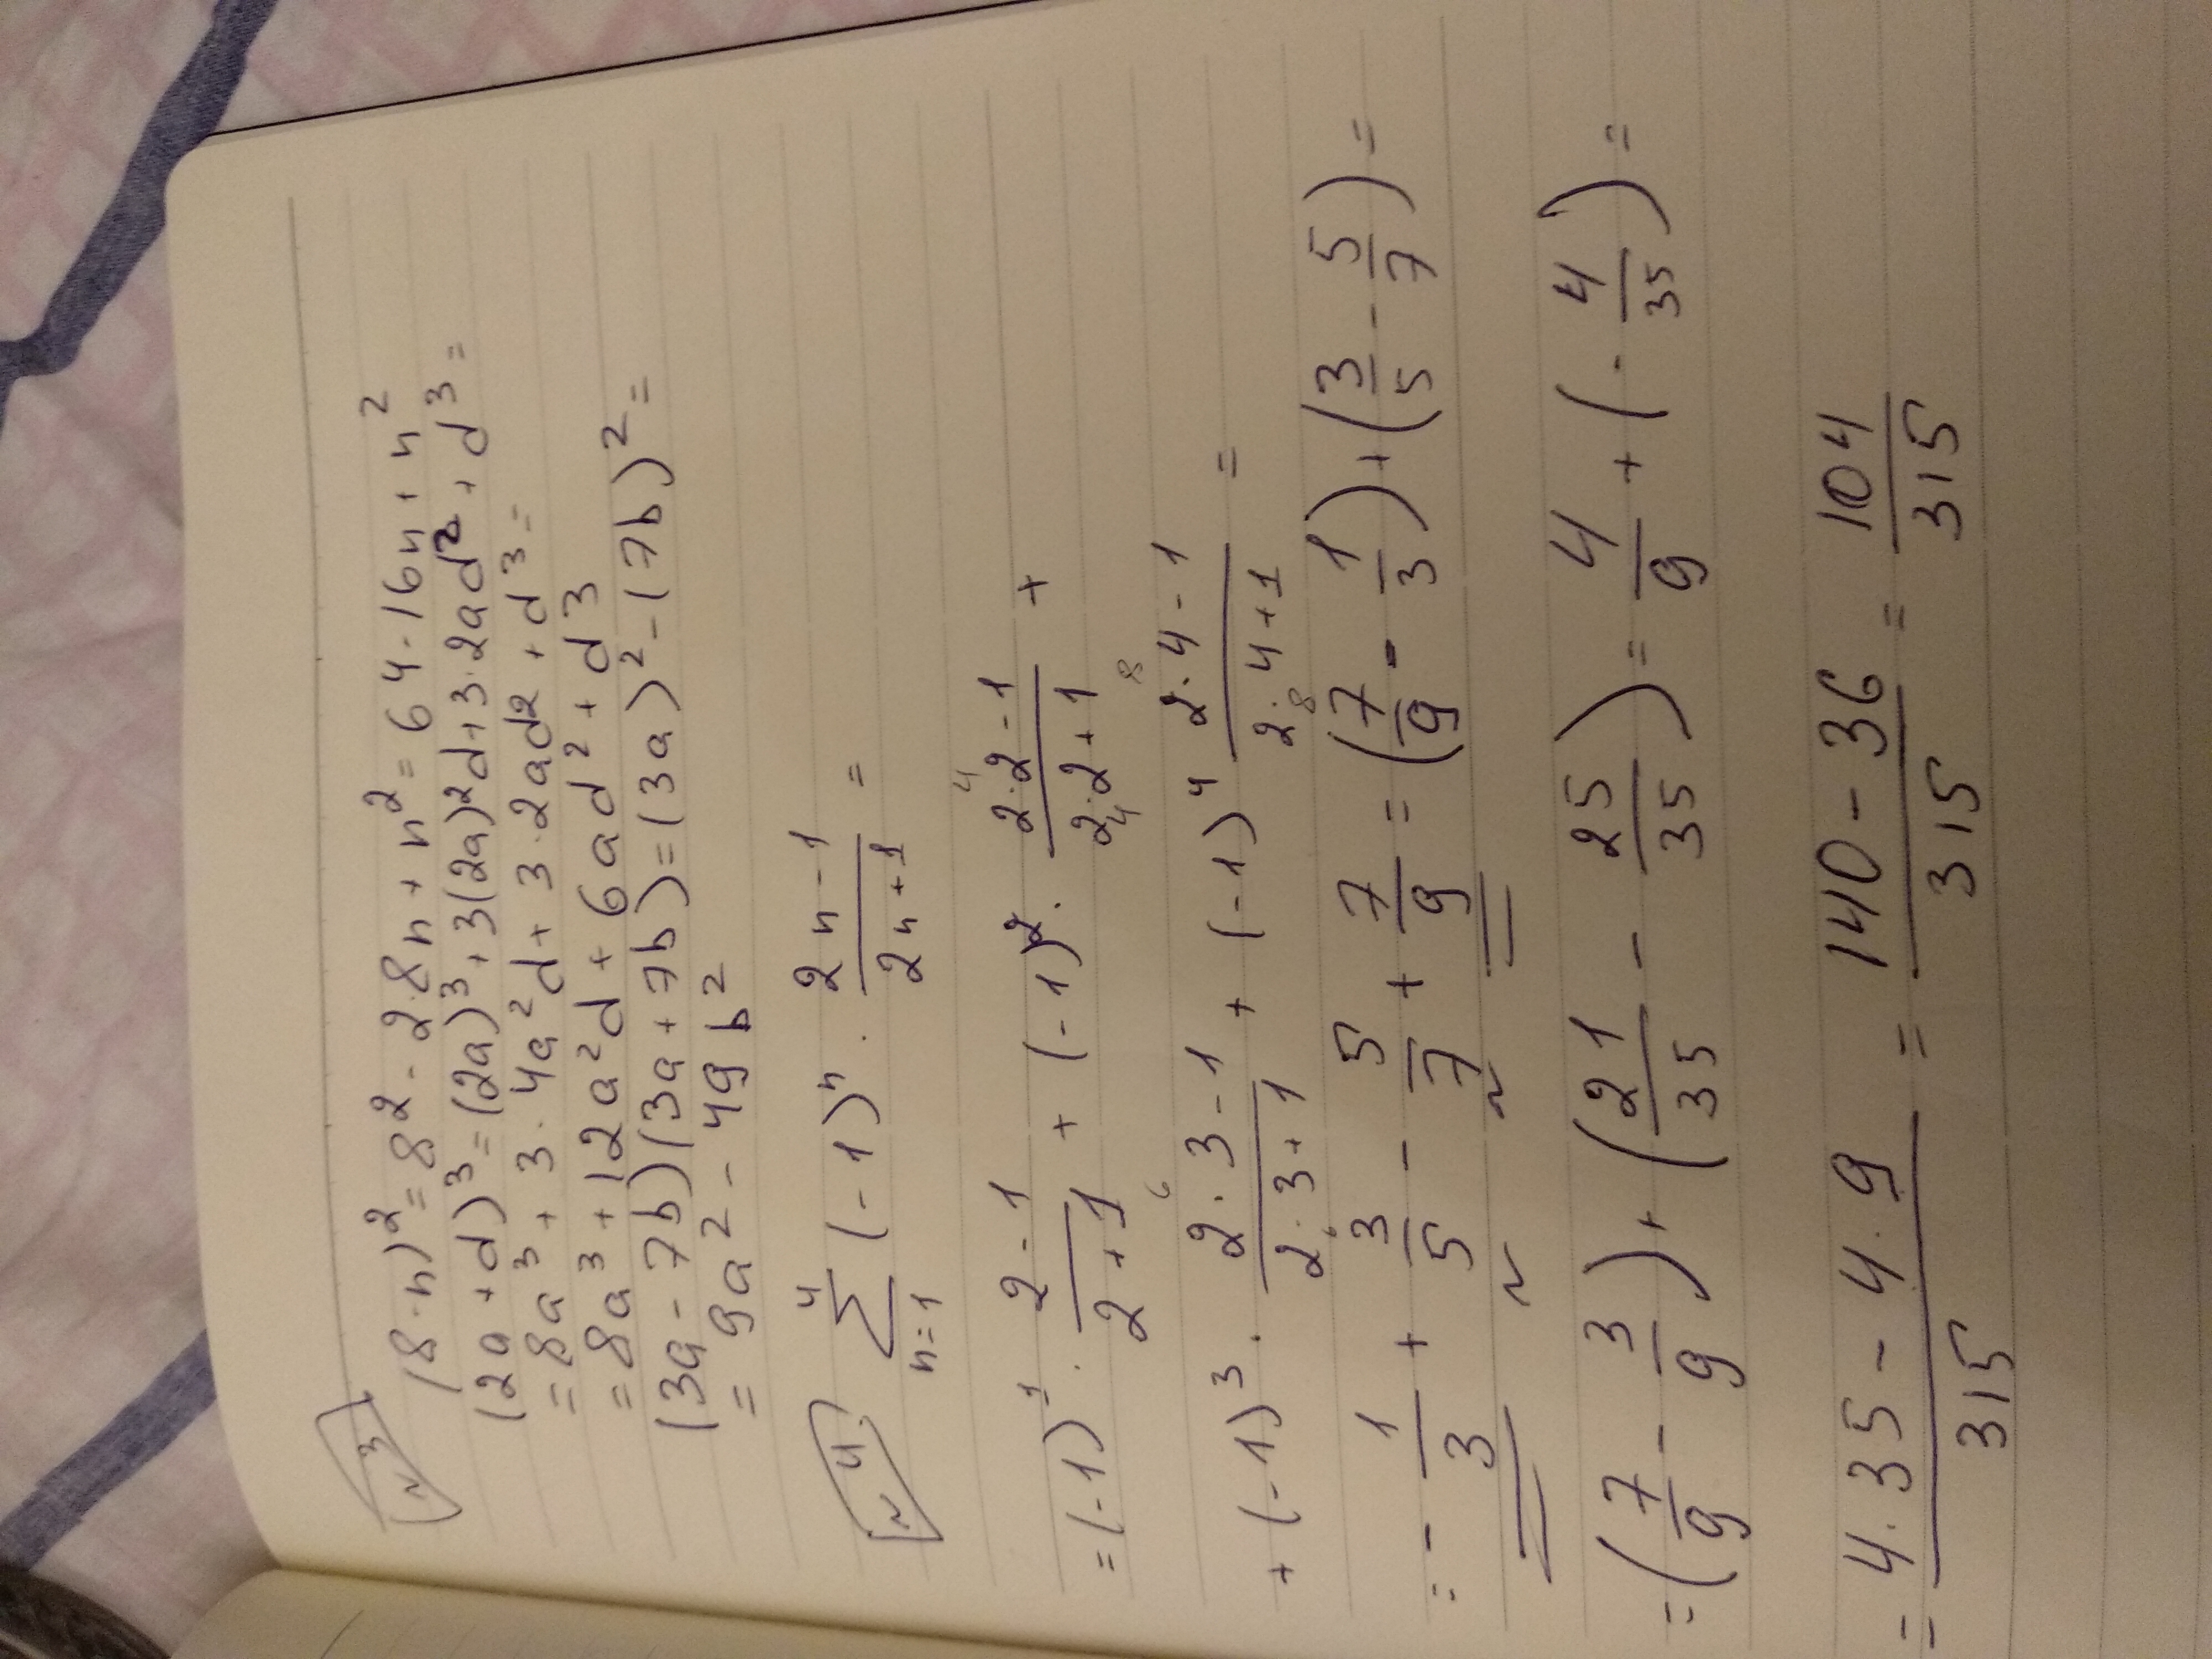 №3
(8-n)² = 8² - 2·8n + n² = 64 - 16n + n²
(2a+d)³ = (2a)³ + 3(2a)²d + 3·2ad² + d³ =
= 8a³ + 3·4a²d + 3·2ad² + d³ =
= 8a³ + 12a²d + 6ad² + d³
(3a - 7b)(3a + 7b) = (3a)² - (7b)² =
= 9a² - 49b²
№4 ∑_{n=1}^{4} (-1)ⁿ · (2n-1)/(2n+1) =
= (-1)¹ · (2-1)/(2+1) + (-1)² · (2·2-1)/(2·2+1) +
+ (-1)³ · (2·3-1)/(2·3+1) + (-1)⁴ (2·4-1)/(2·4+1) =
= - 1/3 + 3/5 - 5/7 + 7/9 = (7/9 - 1/3) + (3/5 - 5/7) =
= (7/9 - 3/9) + (21/35 - 25/35) = 4/9 + (- 4/35) =
= (4·35 - 4·9)/315 = (140 - 36)/315 = 104/315